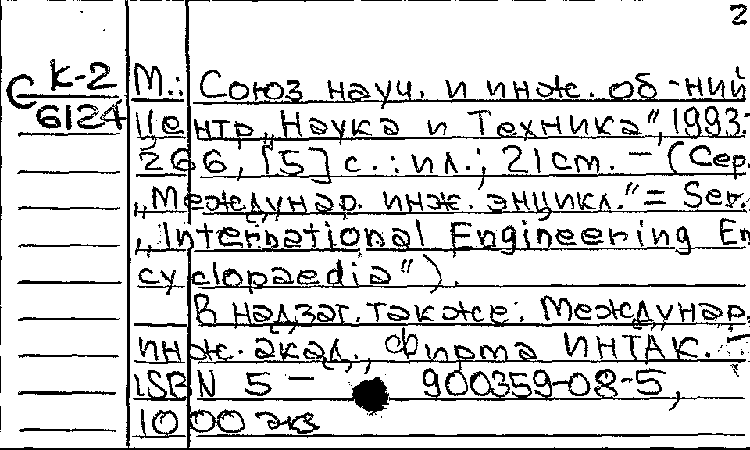 2
С К-2 М.: Союз науч. и инж. об-ний
6124 Центр „Наука и Техника”, 1993.
266, [5] с.: ил.; 21 cm. – (Сер.
„Междунар. инж. энцикл.” = Ser.
„International Engineering En
cyclopaedia”).
В надзаг. также: Междунар.
инж. акад., Фирма ИНТАК. –
ISBN 5 – 900359-08-5,
1000 экз